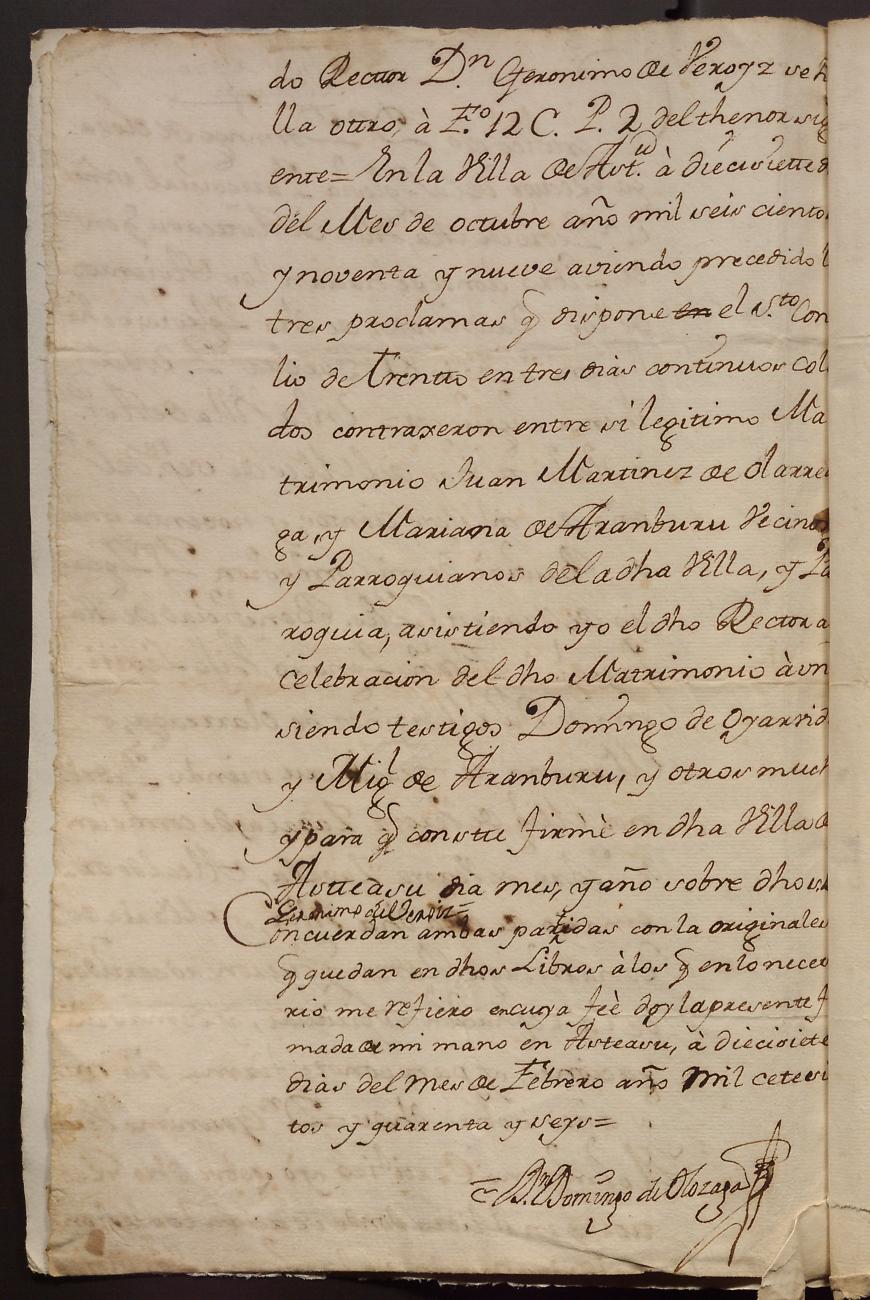 do Rector Dn Geronimo de Veroyz se h
lla ottro, à F.º 12 C. P. 2 del thenor sig
ente= En la Villa de Ast.u à diecisiette d
del Mes de octubre año mil seis ciento
y noventa y nueve aviendo precedido l
tres proclamas q dispone en el S.to Con
lio de Trentto en tres dias continuos col
dos contraxeron entre si legitimo Ma
trimonio Juan Martinez de Olarre
ga, y Mariana de Aranburu Vecinos
y Parroquianos de la dha Villa, y Pa
roquia, asistiendo yo el dho Rector a
celebracion del dho Matrimonio à un
siendo testigos Domingo de Oyarvid
y Migl de Aranburu, y otros much
y para q constte firmè en dha Villa d
Astteasu dia mes, y año sobre dhos
Geronimo de Veroiz=
Concuerdan ambas partidas con la originales
q quedan en dhos Libros à los q en lo neces
rio me refiero en cuya feè doy la presente f
mada de mi mano en Asteasu, à diecisiete
dias del mes de Febrero año Mil cetesi
tos y quarenta y seys=
= Dn Domingo de Olozaga